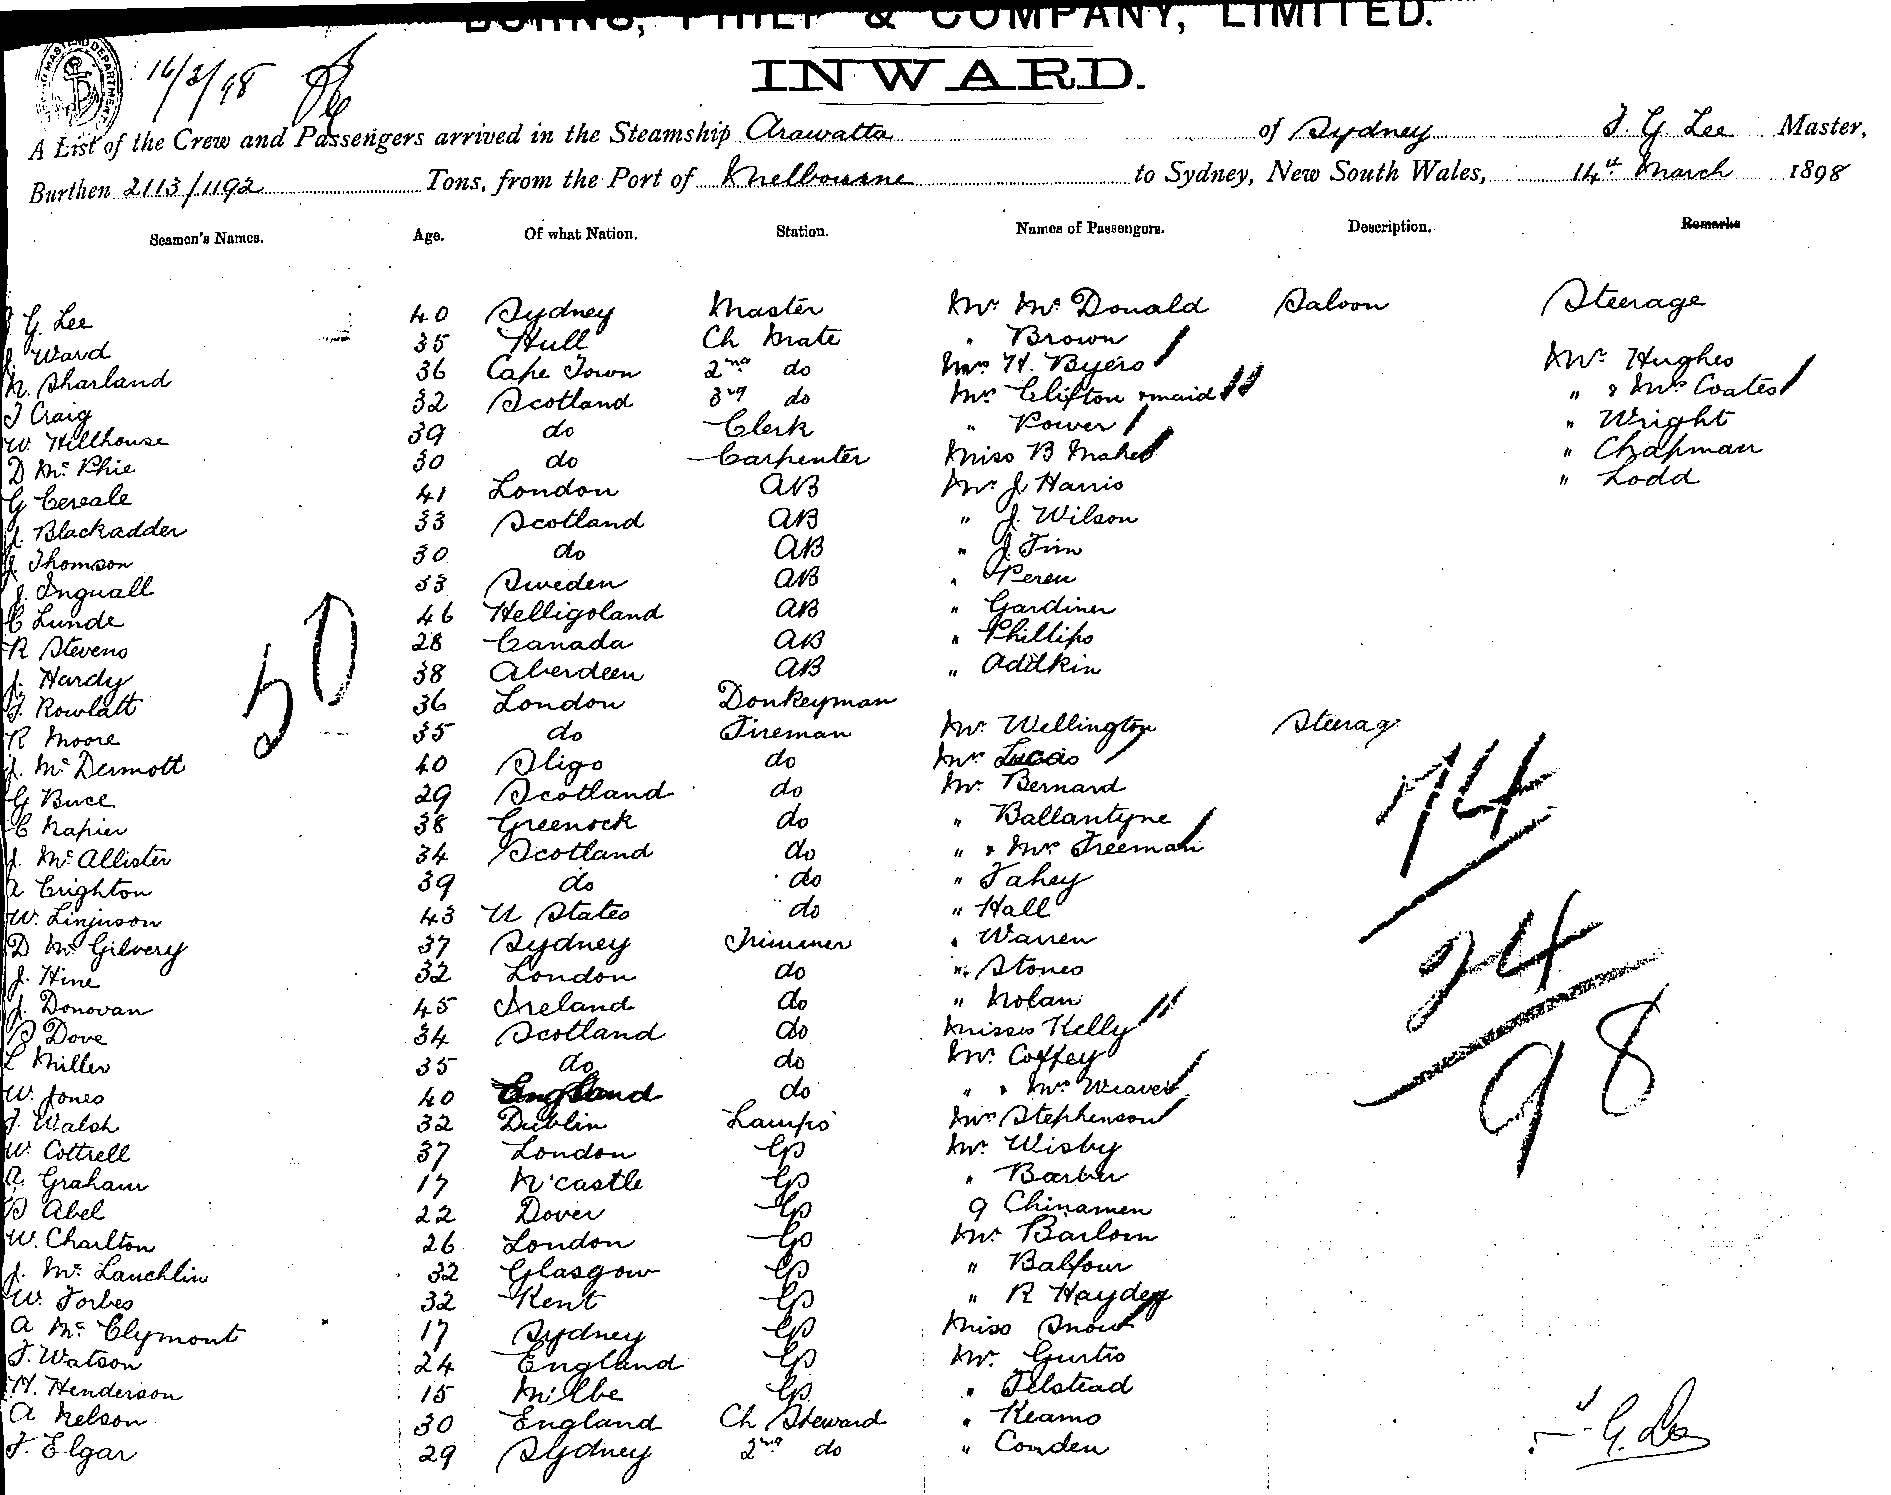 BURNS, PHILP & COMPANY, LIMITED.
INWARD.
16/3/98
A List of the Crew and Passengers arrived in the Steamship Arawatta of Sydney T. G Lee Master,
Burthen 2113/1192 Tons, from the Port of Melbourne to Sydney, New South Wales, 14th March 1898
Seamen's Names. Age. Of what Nation. Station. Names of Passengers. Description. Remarks
G. Lee 40 Sydney Master Mr. Mc Donald Saloon Steerage
J Ward 35 Hull Ch Mate " Brown
N. Sharland 36 Cape Town 2nd do Mrs H. Byers Mr. Hughes
T Craig 32 Scotland 3rd do Mr Clifton & maid " & Mrs Coates
W. Hillhouse 39 do Clerk " Power " Wright
D Mc Phie 30 do Carpenter Miss B Maher " Chapman
G Cereale 41 London AB Mr J. Harris " Lodd
J. Blackadder 33 Scotland AB " J. Wilson
J. Thomson 30 do AB " J. Finn
J. Inguall 33 Sweden AB " Peren
C Lunde 46 Helligoland AB " Gardiner
R Stevens 28 Canada AB " Phillips
J. Hardy 38 Aberdeen AB " Addkin
T. Rowlatt 36 London Donkeyman
50
R Moore 35 do Fireman Mr. Wellington Steerag
J. Mc Dermott 40 Sligo do Mrs Lucas
G Buce 29 Scotland do Mr. Bernard
C Napier 38 Greenock do " Ballantyne
74
J. Mc Allister 34 Scotland do " & Mrs Freeman
A Crighton 39 do do " Fahey
W. Linjuson 43 U States do " Hall
D Mc Gilvery 37 Sydney Trimmer " Warren
24
J. Hine 32 London do " Stones
J. Donovan 45 Ireland do " Nolan
P Dove 34 Scotland do Misses Kelly
L Miller 35 do do Mr. Coffey
98
W. Jones 40 England do " & Mrs Weaver
T. Walsh 32 Dublin Lamps Mrs Stephenson
W. Cottrell 37 London Mr. Wisby
A. Graham 17 N'castle " Barber
B Abel 22 Dover 9 Chinamen
W. Charlton 26 London Mr. Barlow
J. Mc Lauchlin 32 Glasgow " Balfour
W. Forbes 32 Kent " R Hayden
A Mc Clymont 17 Sydney Miss Snow
T. Watson 24 England Mr. Curtis
H. Henderson 15 Melbe " Felstead
A Nelson 30 England Ch Steward " Keamo
F. Elgar 29 Sydney 2nd do " Conden
G. Lee